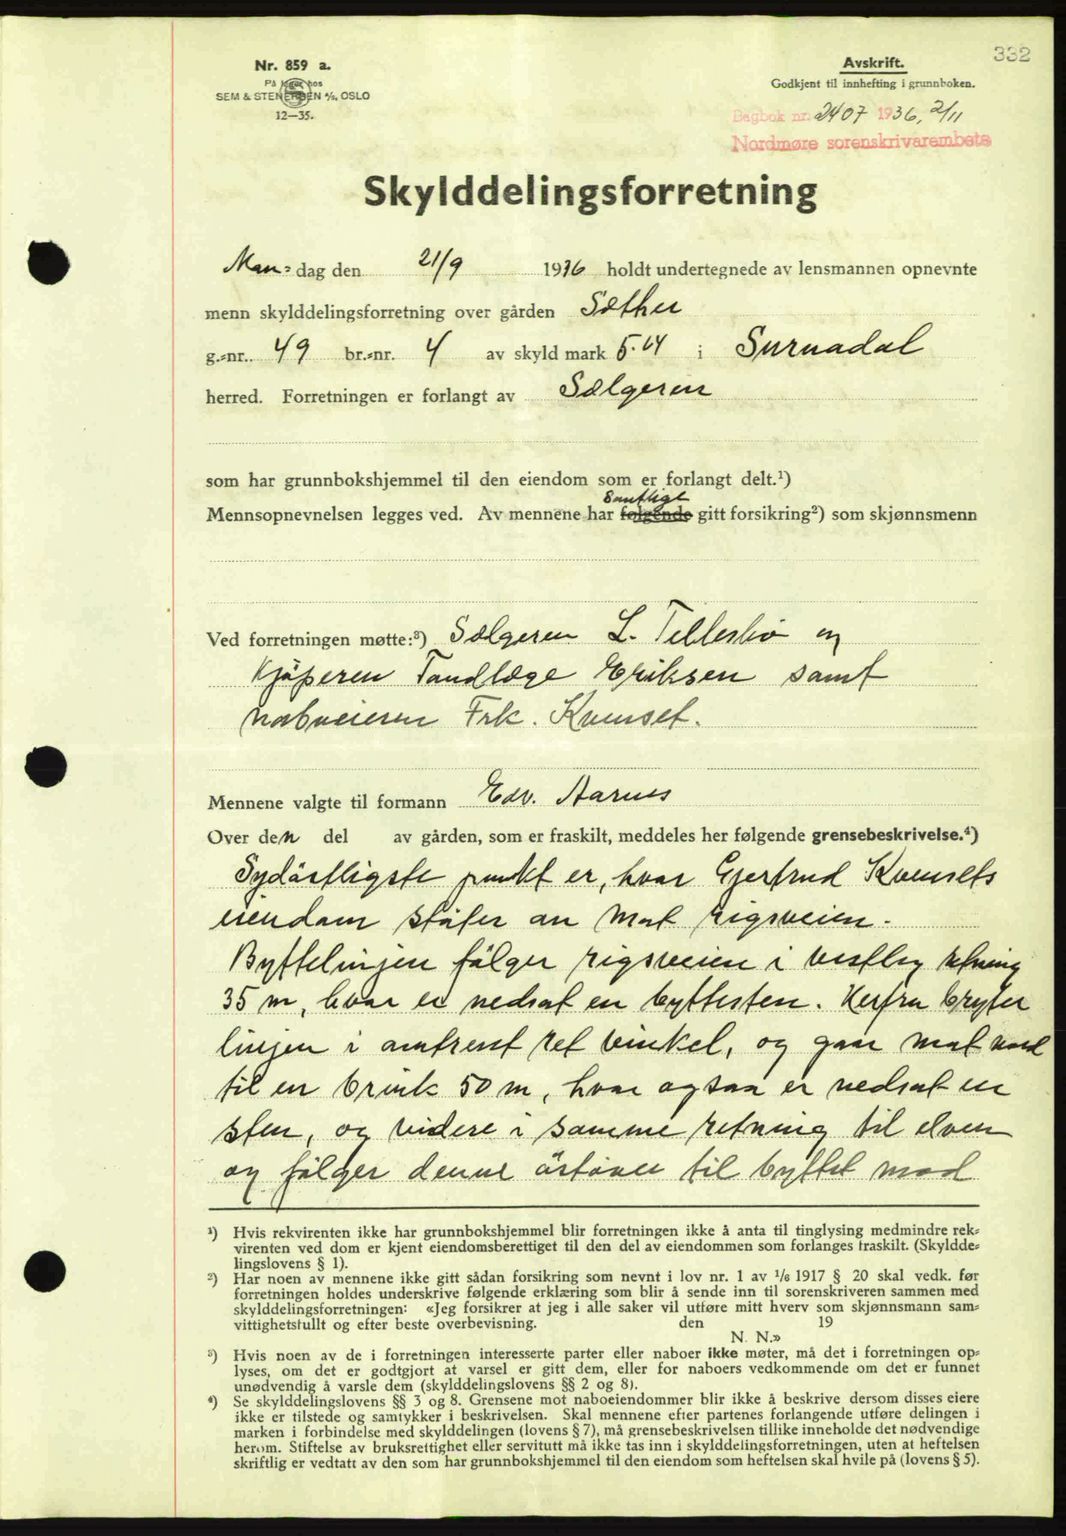 332
Nr. 859 a.
På lager hos
SEM & STENERSEN A/S, OSLO
12—35.
Avskrift.
Godkjent til innhefting i grunnboken.
Dagbok nr. 2407 1936, 2/11
Nordmøre sorenskrivarembete
Skylddelingsforretning
Man= dag den 21/9 1936 holdt undertegnede av lensmannen opnevnte
menn skylddelingsforretning over gården Sæther
g.=nr. 49 br.=nr. 4 av skyld mark 5.04 i Surnadal
herred. Forretningen er forlangt av Sælgeren
som har grunnbokshjemmel til den eiendom som er forlangt delt.¹)
samtlige
Mennsopnevnelsen legges ved. Av mennene har følgende gitt forsikring²) som skjønnsmenn
Ved forretningen møtte:³) Sælgeren L. Tellesbø og
Kjøperen Tandlæge Eriksen samt
naboeieren Frk. Kvenset.
Mennene valgte til formann Edv. Aarnes
Over den del av gården, som er fraskilt, meddeles her følgende grensebeskrivelse.⁴)
Sydöstligste punkt er, hvor Gjertrud Kvensets
eiendom stöter an mot rigsveien.
Byttelinjen fölger rigsveien i vestlig retning
35 m, hvor er nedsat en byttesten. Herfra bryter
linjen i omtrent ret vinkel, og gaar mot nord
til en brink 50 m, hvor ogsaa er nedsat en
sten, og videre i samme retning til elven
og fölger denne östover til byttet mod
¹) Hvis rekvirenten ikke har grunnbokshjemmel blir forretningen ikke å anta til tinglysing medmindre rek=
virenten ved dom er kjent eiendomsberettiget til den del av eiendommen som forlanges fraskilt. (Skyldde=
lingslovens § 1).
²) Har noen av mennene ikke gitt sådan forsikring som nevnt i lov nr. 1 av 1/6 1917 § 20 skal vedk. før
forretningen holdes underskrive følgende erklæring som blir å sende inn til sorenskriveren sammen med
skylddelingsforretningen: «Jeg forsikrer at jeg i alle saker vil utføre mitt hverv som skjønnsmann sam=
vittighetsfullt og efter beste overbevisning. den 19
N. N.»
³) Hvis noen av de i forretningen interesserte parter eller naboer ikke møter, må det i forretningen op=
lyses, om det er godtgjort at varsel er gitt dem, eller for naboers vedkommende om det er funnet
unødvendig å varsle dem (skylddelingslovens §§ 2 og 8).
⁴) Se skylddelingslovens §§ 3 og 8. Grensene mot naboeiendommer blir ikke å beskrive dersom disses eiere
ikke er tilstede og samtykker i beskrivelsen. Skal mennene efter partenes forlangende utføre delingen i
marken i forbindelse med skylddelingen (lovens § 7), må grensebeskrivelsen tillike inneholde det nødvendige
herom. Stiftelse av bruksrettighet eller servitutt må ikke tas inn i skylddelingsforretningen, uten at heftelsen
skriftlig er vedtatt av den som har grunnbokshjemmel til den eiendom som heftelsen skal hvile på (lovens § 5).